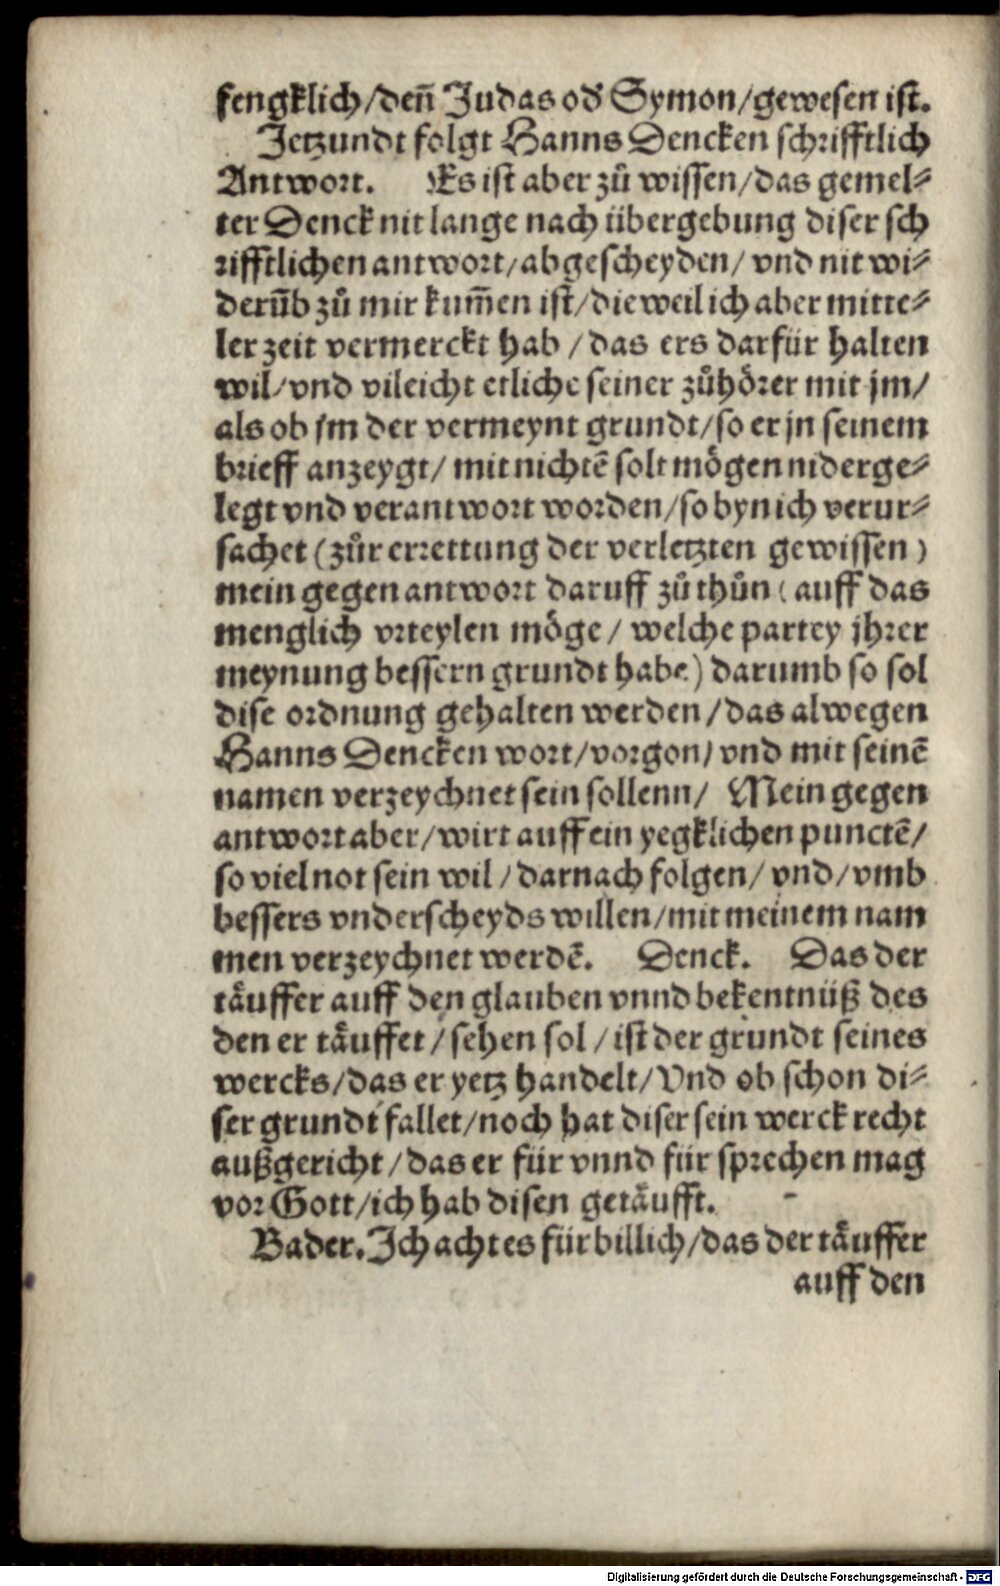 fengklich/deñ Judas od' Symon/gewesen ist.
Jetzundt folgt Hanns Dencken schrifftlich
Antwort. Es ist aber zů wissen/das gemel⸗
ter Denck nit lange nach übergebung diser sch
rifftlichen antwort/abgescheyden/ vnd nit wi⸗
derūb zů mir kum̄en ist/dieweil ich aber mitte⸗
ler zeit vermerckt hab / das ers darfür halten
wil/vnd vileicht etliche seiner zůhörer mit jm/
als ob jm der vermeynt grundt/so er jn seinem
brieff anzeygt/ mit nichtē solt mögen niderge⸗
legt vnd verantwort worden/so byn ich verur⸗
sachet (zůr errettung der verletzten gewissen)
mein gegen antwort daruff zů thůn (auff das
menglich vrteylen möge / welche partey jhrer
meynung bessern grundt habe) darumb so sol
dise ordnung gehalten werden/das alwegen
Hanns Dencken wort/vorgon/vnd mit seinē
namen verzeychnet sein sollenn/ Mein gegen
antwort aber/wirt auff ein yegklichen punctē/
so viel not sein wil/darnach folgen/ vnd/vmb
bessers vnderscheyds willen/mit meinem nam
men verzeychnet werdē. Denck. Das der
täuffer auff den glauben vnnd bekentnüß des
den er täuffet/sehen sol/ist der grundt seines
wercks/das er yetz handelt/Vnd ob schon di⸗
ser grundt fallet/noch hat diser sein werck recht
außgericht/das er für vnnd für sprechen mag
vor Gott/ich hab disen getäufft.
Bader. Ich acht es für billich/das der täuffer
auff den
Digitalisierung gefördert durch die Deutsche Forschungsgemeinschaft - DFG